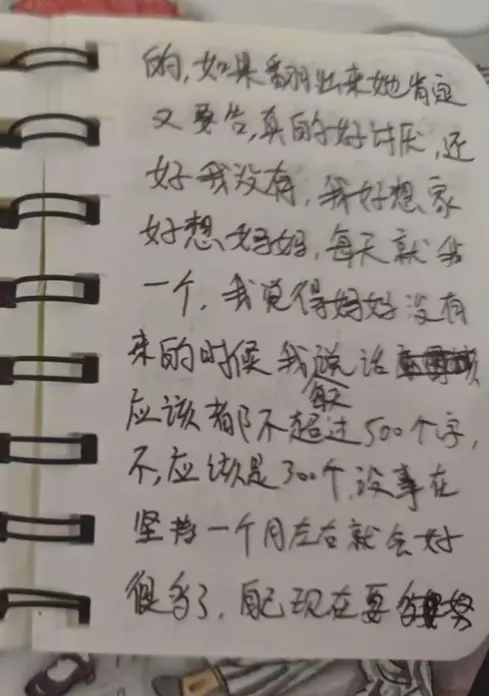 的，如果翻出来她肯定
又要告，真的好讨厌，还
好我没有，我好想家
好想妈妈，每天就我
一个，我觉得妈妈没有
来的时候我每天说话
应该都不超过500个字，
不，应该是300个，没事在
坚持一个月左右就会好
很多了，自己现在要努